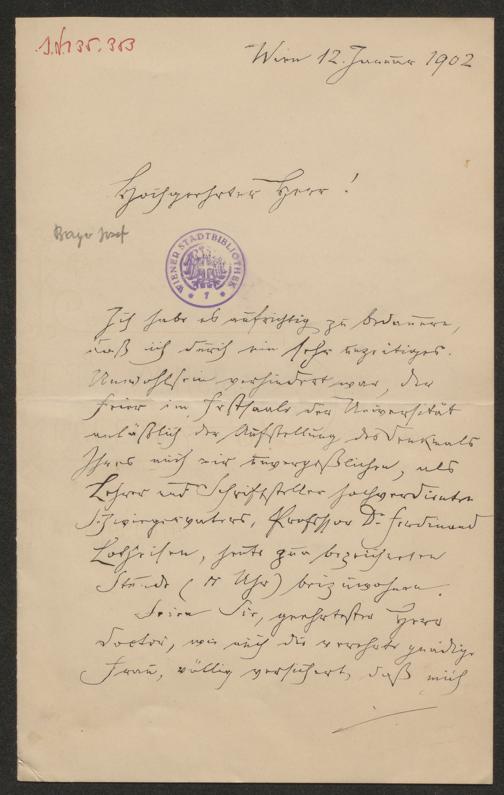 J.N. 135.353
Wien 12. Januar 1902
Hochgeehrter Herr!
Bayer Josef
WIENER STADTBIBLIOTHEK
1
Ich habe es aufrichtig zu bedauern,
daß ich durch ein sehr unzeitiges
Unwohlsein verhindert war, der
Feier im Festsaale der Universität
anläßlich der Aufstellung des Denkmals
Ihres auch mir unvergeßlichen, als
Lehrer und Schriftsteller hochverdienten
Schwiegervaters, Professor Dr. Ferdinand
Lotheisen, heute zur bezeichneten
Stunde (11 Uhr) beizuwohnen.
Seien Sie, geehrtester Herr
Doctor, wie auch die verehrte gnädige
Frau, völlig versichert, daß mich